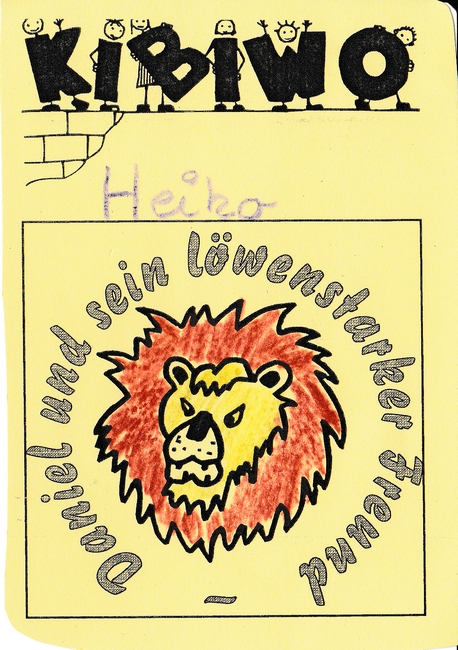 KIBIWO
Heiko
Daniel und sein löwenstarker Freund -